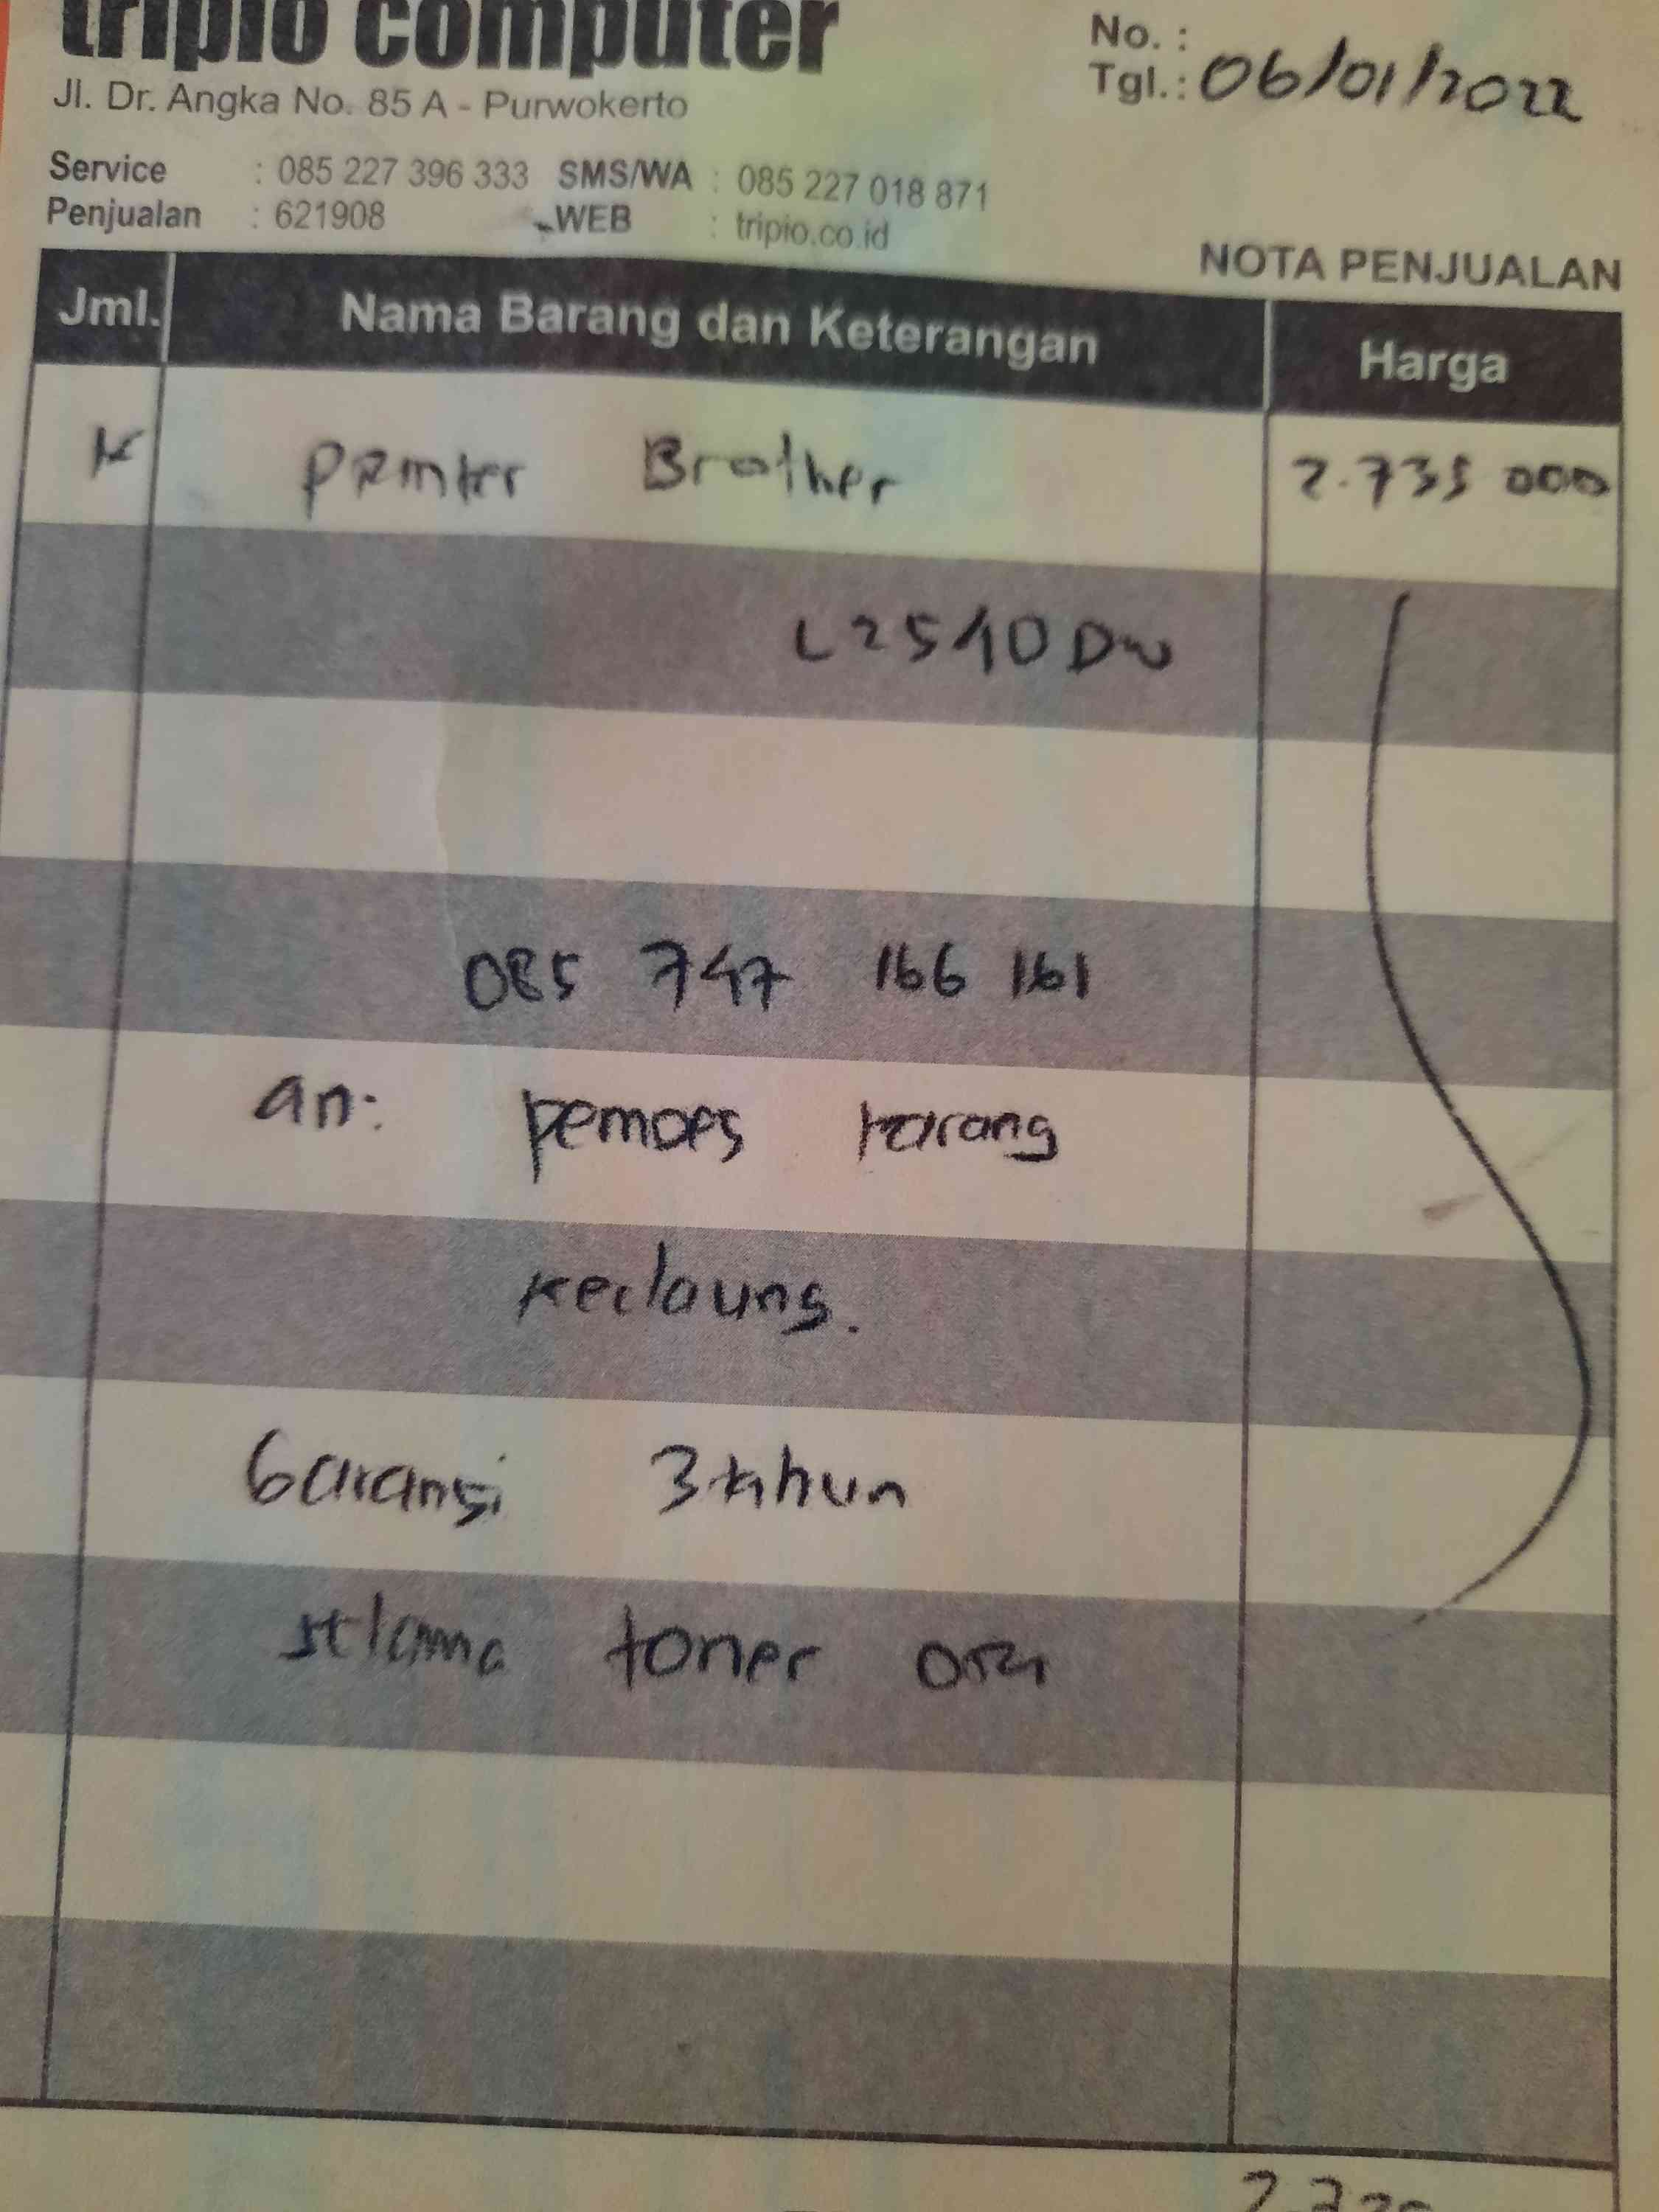 tripio computer
Jl. Dr. Angka No. 85 A - Purwokerto
No. :
Tgl.: 06/01/2022
Service : 085 227 396 333 SMS/WA : 085 227 018 871
Penjualan : 621908 WEB : tripio.co.id
NOTA PENJUALAN
Jml. Nama Barang dan Keterangan Harga
Printer Brother 2.735 000
L2540DW
085 747 166 161
an: pemdes karang
kedawung.
Garansi 3 tahun
selama toner ori